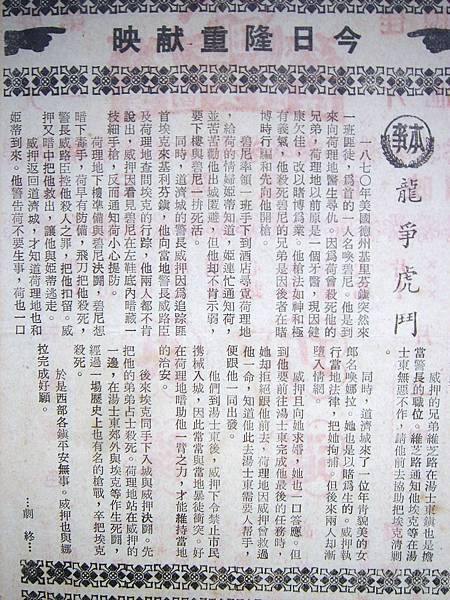 今日隆重献映
本事
龍爭虎鬥
一八七〇年美國德州基里芬鎮突然來
一班匪徒，為首的一人名喚碧尼。他是到
來向荷理地醫生尋仇。因為荷曾殺死他的
兄弟，荷理地以前原是一個牙醫，現因健
康欠佳，改以賭博為業。他槍法如神和極
有義氣，他殺死碧尼的兄弟是因後者在賭
博時行騙和先向他開槍。
碧尼率領一班手下到酒店尋克荷理地
，給荷的情婦姬蒂知道，姬連忙通知荷，
並苦苦勸他出城匿避，但他却不肯示弱，
要下樓與碧尼一拚死活。
同時，道濟城的警長威押因為追踪匪
首埃克來基利芬鎮，他向當地警長威路臣
及荷理地查問埃克的行踪，他兩人都不肯
說出，威押因看見碧尼在左鞋底內暗藏一
枝細手槍，反而通知荷小心提防。
荷理地下樓準備與碧尼決鬪，碧尼想
暗下毒手，荷早有防備，飛刀把他殺死，
警長威路臣格他殺人之罪，把他扣留。威
押又暗中把他救出，讓他與姬蒂逃走。
威押返回道濟城，才知道荷理地也和
姬蒂到來。他警告荷他不要生事，荷也一口
威押的兄弟維芝路在湯士東鎮也是擔
當警長的職位。維芝路通知他埃克等在湯
士東無惡不作，請他前去協助把埃克清剿
。
同時，道濟城來了一位年青貌美的女
郎名喚娜拉。她也是以賭為生的。威押執
行當地法律，把她拘捕，但後來兩人却漸
墮入情網。
威押且向她求婚，她也一口答應。但
到他要前往湯士東完成他最後的任務時，
她却拒絕跟他前去，荷理地因威押曾救過
他一命，知道他此去湯士東需要人幫手，
便跟他一同出發。
他們到湯士東後，威押下令禁止市民
携械入城，因此常常與當地暴徒衝突。好
在荷理地暗助他一臂之力，才能維持當地
的治安。
後來埃克同手下入城與威押決鬪。先
把他的幼弟占士殺死。荷理地站在威押的
一邊，在湯士東郊外與埃克等作生死鬪，
經過一場歷史上也有名的槍戰，卒把埃克
殺死。
於是西部各鎮平安無事。威押也與娜
拉完成好願。
…劇終…